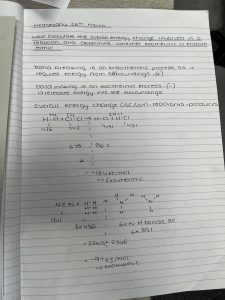 Wednesday
LO: calculate the overall energy change involved in a
reaction and determine whether exothermic or endoth-
ermic
bond breaking is an endothermic process as it
requires energy from surroundings (+)
bond making is an exothermic process (-)
it releases energy into the surroundings
overall energy change = reactants - products
H-H + Cl-Cl → H-Cl + H-Cl
436 242 431 431
678 862
exothermic
N≡N + H-H
H-H
H-H
941 6x N-H bonds
3x436 6x391
= 2249 - 2346
= -97 kJ/mol
exothermic